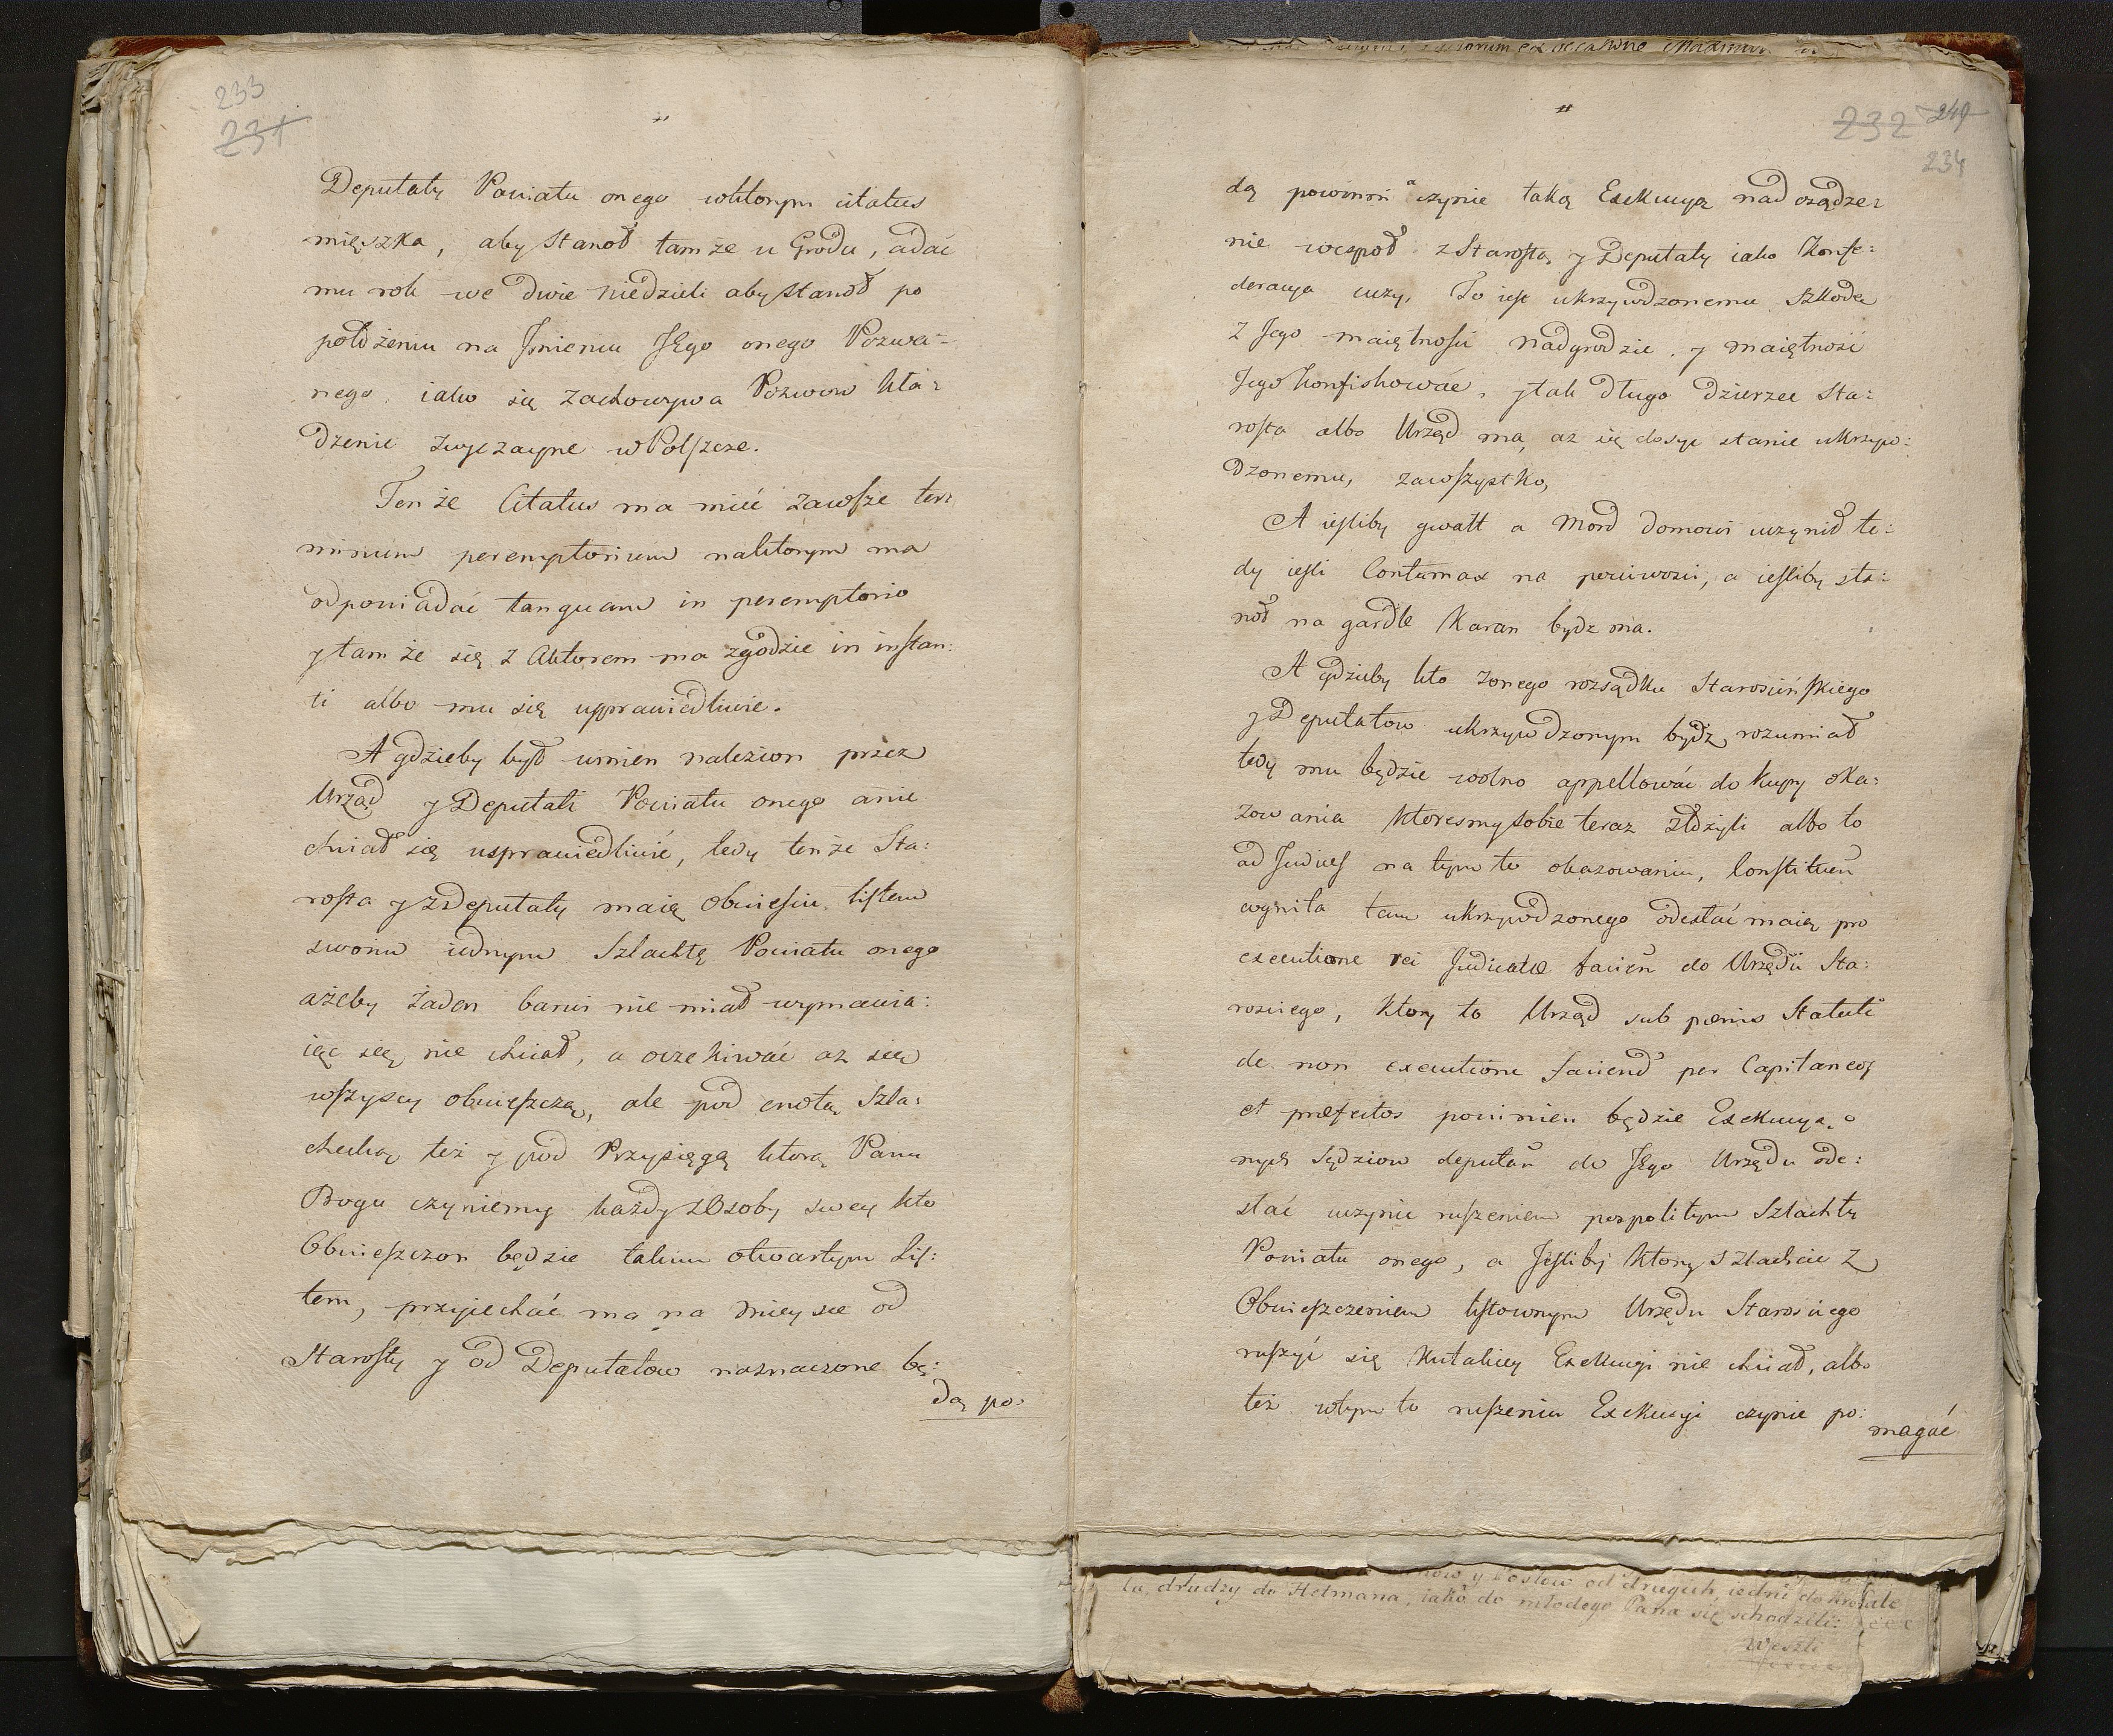 233
231
Deputaty Powiatu onego wktorym citatus
mięszka, aby stanoł tamże u Grodu, a dać
mu rok we dwie niedzieli aby stanoł po
położeniu na Jmieniu JEgo onego Pozwa=
nego, iako się zachowywa Pozwow kła=
dzenie zwyczayne wPolszcze.
Tenże Citatus ma mieć zawsze ter=
minum peremptorium naktorym ma
odpowiadać tanquam in peremptorio
y tamże się z Aktorem ma zgodzic in instan:
ti albo mu się usprawiedliwic.
A gdzieby był winien nalezion przez
Urząd y Deputati Powiatu onego a nie
chciał się usprawiedliwić, tedy tenże Sta:
rosta y zDeputaty maią obwieścic listem
swoim iednym Szlachtę Powiatu onego
ażeby żaden barwi nie miał wymawia:
iąc się nie chciał, a oczekiwać az się
wszyscy obwieszczą, ale pod cnotą Szla:
checką też y pod Przysięgą ktorą Panu
Bogu czyniemy każdy z Osoby swey kto
Obwieszczon będzie takim otwartym Lis:
tem, przyiechać ma na mieysce od
Starosty y od Deputatow naznaczone bę:
dą po:
232 249
234
dą powinni czynic taką Exekucyą nad osądze=
nie wespoł z Starostą y Deputaty iako Konfe:
deracya uczy, To iest ukrzywdzonemu szkodą
z Jego maiętności nadgrodzic, y maiętność
Jego konfiskowac, y tak długo dzierzec Sta:
rosta albo Urząd ma, aż się dosyc stanie ukrzyw:
dzonemu, zawszystko,
A iesliby gwałt a mord domowi uczynił te:
dy iesli Contumax na pocciwosci, a iesliby sta:
noł na gardle karan bydz ma.
A gdzieby kto zonego rozsądku Starościńskiego
y Deputatow ukrzywdzonym bydz rozumiał
tedy mu będzie wolno appellowac do kupy oka:
zowania ktoresmy sobie teraz złożyli albo to
ad Judices na tym to okazowaniu, Constituen
cognita tam ukrzywdzonego odesłać maią pro
executione rei Judicatæ facien do Urzędu Sta:
rosciego, ktory to Urząd sub pœnis Statuti
de non executione faciend per Capitaneos
et præfectos powinien będzie Exekucyą o
nych sędziow deputan do JEgo Urzędu ode:
słać uczynic ruszeniem pospolitym Szlachty
Powiatu onego, a Jesliby ktory szlachcic z
Obwieszczeniem listownym Urzędu Starosciego
ruszyć się kutakiey Exekucyi nie chciał, albo
też wtym to ruszeniu Exekucyi czynic po:
magać
ta, drudzy do Hetmana, iako do młodego Pana się schodzili:
Weszli